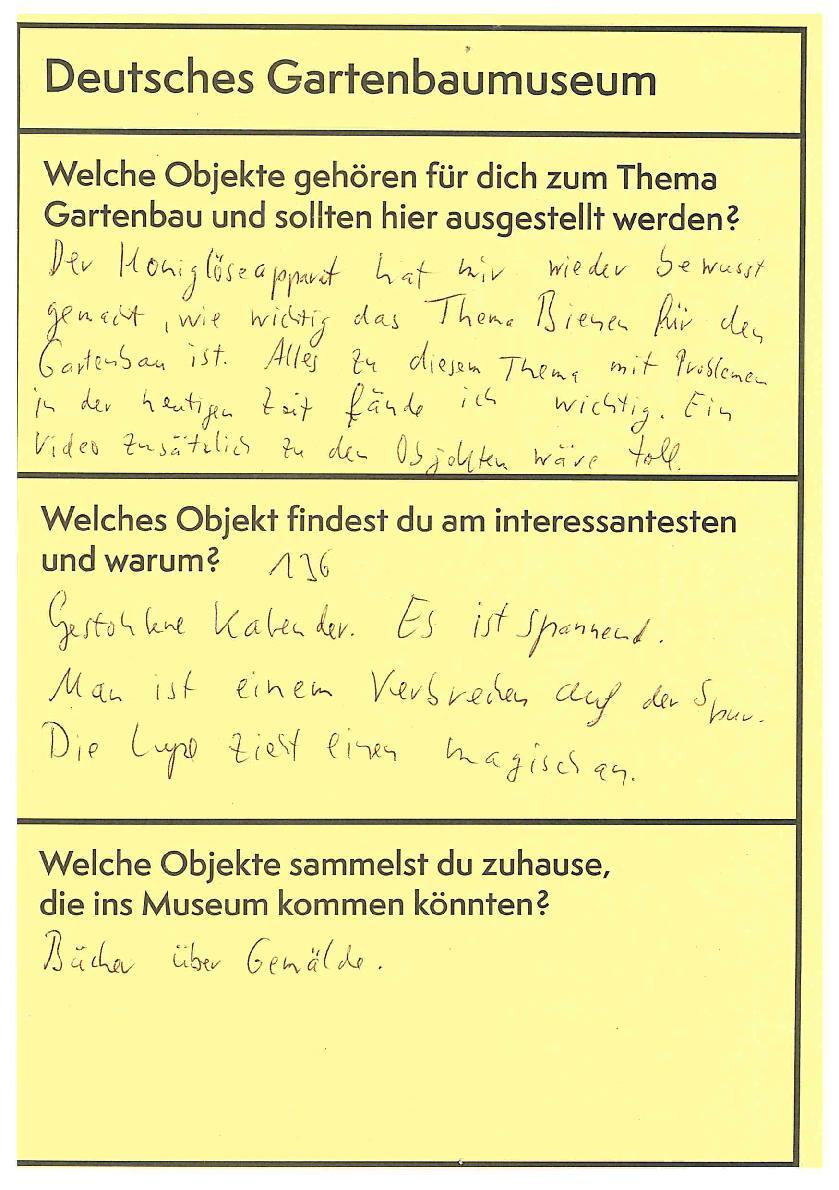 Deutsches Gartenbaumuseum
Welche Objekte gehören für dich zum Thema
Gartenbau und sollten hier ausgestellt werden?
Der Honiglöseapparat hat mir wieder bewusst
gemacht, wie wichtig das Thema Bienen für den
Gartenbau ist. Alles zu diesem Thema mit Problemen
in der heutigen Zeit fände ich wichtig. Ein
Video zusätzlich zu den Objekten wäre toll.
Welches Objekt findest du am interessantesten
und warum? 136
Gestohlene Kalender. Es ist spannend.
Man ist einem Verbrechen auf der Spur.
Die Lupe zieht einen magisch an.
Welche Objekte sammelst du zuhause,
die ins Museum kommen könnten?
Bücher über Gemälde.